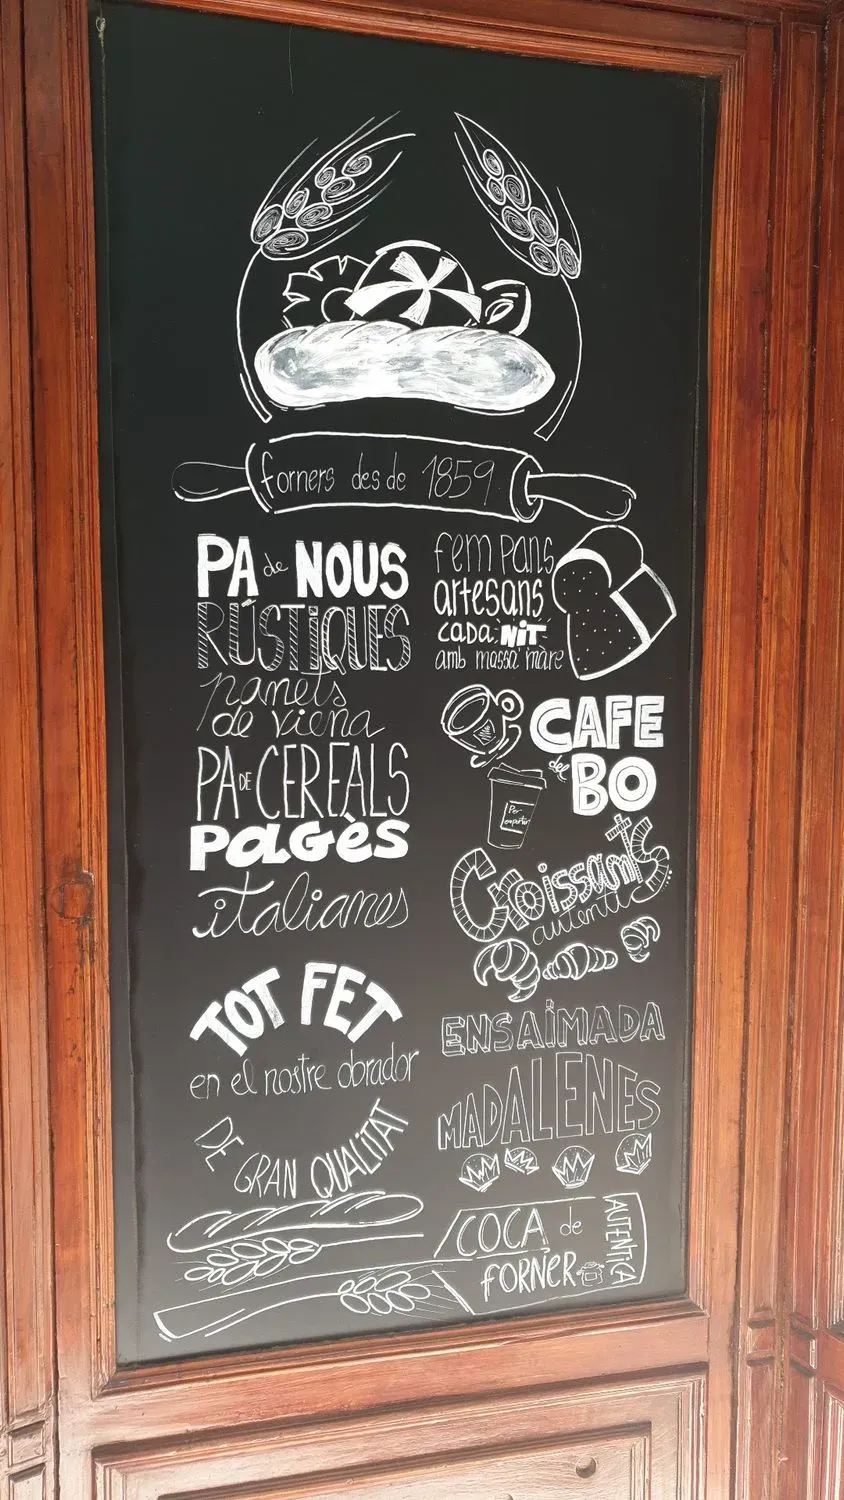 forners des de 1859
PA de NOUS
RÚSTIQUES
panets
de viena
PA DE CEREALS
PAGÈS
italianes
TOT FET
en el nostre obrador
DE GRAN QUALITAT
fem pans
artesans
cada NIT
amb massa mare
CAFE
del BO
Per
emportar
Croissants
autentics
ENSAÏMADA
MADALENES
COCA de
FORNER
AUTÈNTICA